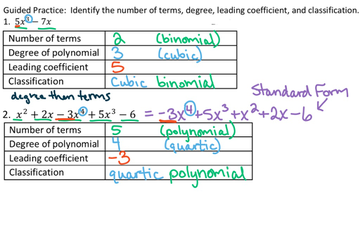 Guided Practice: Identify the number of terms, degree, leading coefficient, and classification.
1. 5x³ − 7x
Number of terms 2 (binomial)
Degree of polynomial 3 (cubic)
Leading coefficient 5
Classification cubic binomial
degree then terms
Standard Form
2. x² + 2x − 3x⁴ + 5x³ − 6 = −3x⁴ + 5x³ + x² + 2x − 6
Number of terms 5 (polynomial)
Degree of polynomial 4 (quartic)
Leading coefficient −3
Classification quartic polynomial